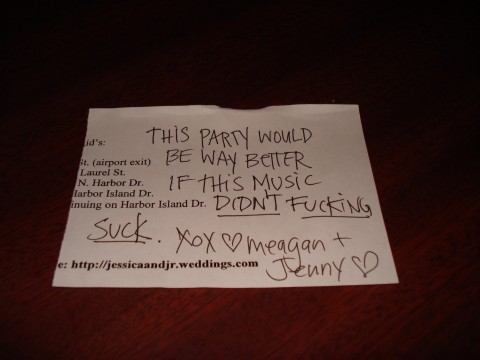 id's:
THIS PARTY WOULD
St. (airport exit)
BE WAY BETTER
Laurel St.
N. Harbor Dr.
IF THIS MUSIC
Harbor Island Dr.
inuing on Harbor Island Dr.
DIDN'T FUCKING
SUCK. XOX ♡ meagan +
Jenny ♡
e: http://jessicaandjr.weddings.com